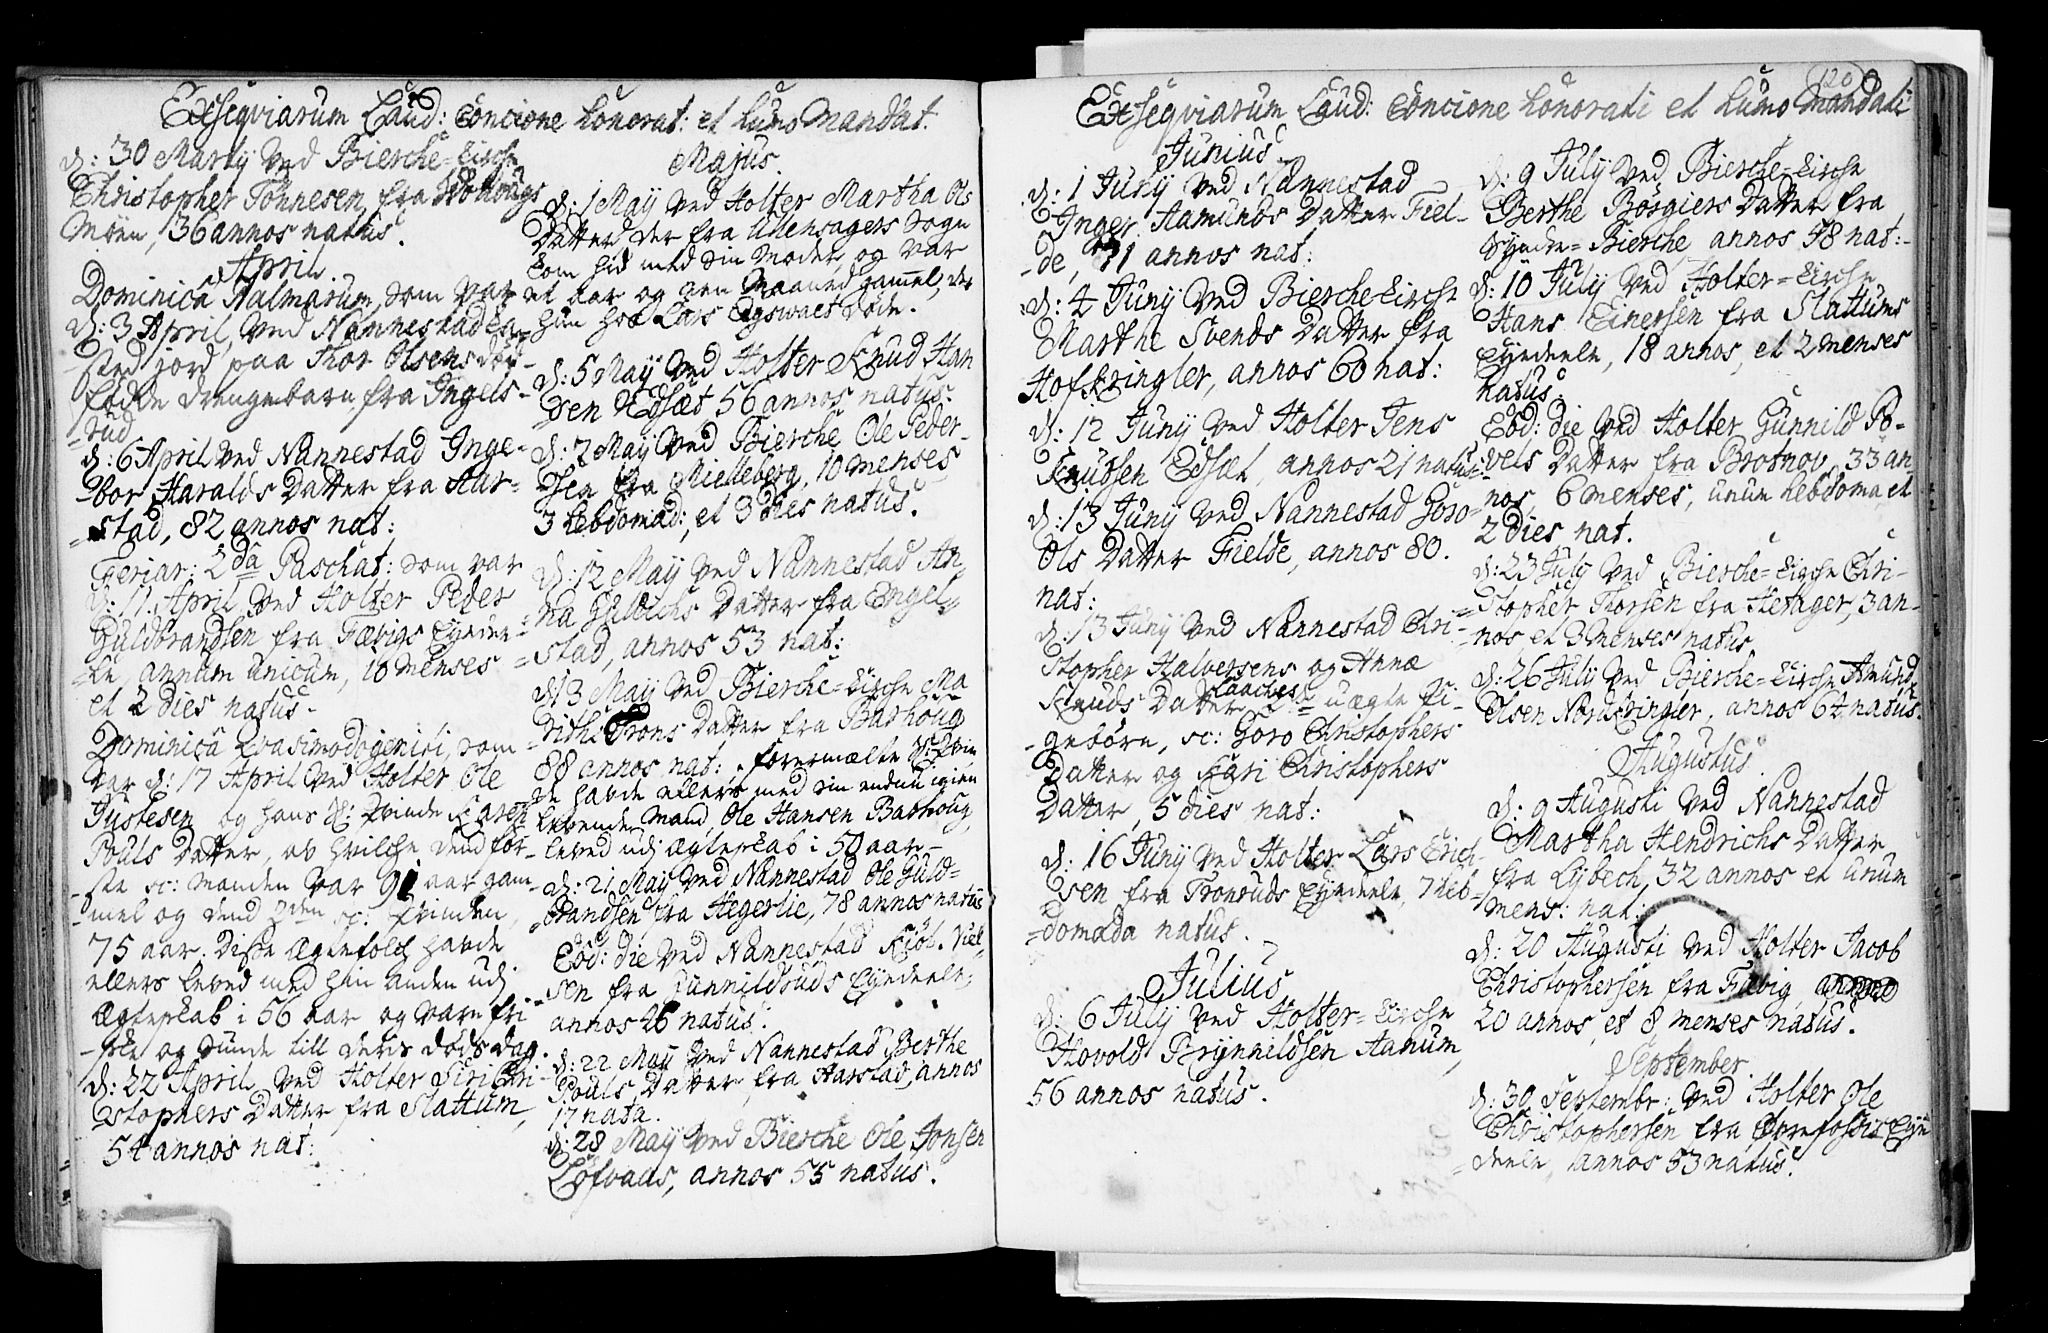 Exseqviarum Laud: Concione honorat: et humo mandat.
d: 30 Martij ved Bierche-Kirche
Christopher Tønnesen fra
Moen, 36 annos natus.
April
Dominica Palmarum, som var
d: 3 April, ved Nannestad ca-
sted jord paa Thor Olsens død-
fødde drengebarn fra Ingels-
rud
d: 6 April ved Nannestad Inge-
bor Haralds Datter fra Har-
stad, 82 annos nat:
Feriar: 2da Paschat: som var
d: 11. April ved Holter Peder
Guldbrandsen fra Fæbigs Eyedee-
le, annum unicum, 10 menses
et 2 dies natus.
Dominica Qvasimodogeniti, som
var d: 17 April ved Holter Ole
Justesen og hans H: Qvinde Karen
Pouls Datter, av hvilche dend for-
ste sc: Manden var 91 aar gam-
mel og dend 2den sc: Qvinden,
75 aar. Disse Ægtefolch havde
ellers leved med hin anden udj
Ægteskab i 56 aar og vare fri-
ske og sunde till deris døds dag.
d: 22 April ved Holter Siri Chri-
stophers Datter fra Slattum,
54 annos nat:
Majus.
d: 1 Maij ved Holter Martha Ols
Datter der fra Ullensagers Sogn
kom hid med sin Moder, og var
et aar og een Maaned gamel, der
hun hos Lars døde.
d: 5 Maij ved Holter Knud Han
sen Edsæt 56 annos natus.
d: 7 Maij ved Bierche Ole Peder-
sen fra Mielleberg, 10 menses
3 hebdomad: et 3 dies natus.
d: 12 Maij ved Nannestad An-
na Gulichs Datter fra Engel-
stad, annos 53 nat:
d: 13 Maij ved Bierche-Kirche Ma
riths Trons Datter fra Barhoug
88 annos nat: formælte H: Qvin
de havde ellers med sin endnu igien
levende Mand, Ole Hansen Barhoug,
leved udj Ægteskab i 50 aar-
d: 21 Maij ved Nannestad Ole Guld-
brandsen fra Hegerlie, 78 annos natus
Eod: die ved Nannestad Kiøl. Niel-
sen fra Gunnildruds Eyedeele,
annos 26 natus.
d: 22 Maij ved Nannestad Berthe
Pouls Datter fra Harstad, annos
17 nata.
d: 28 Maij ved Bierche Ole Jonsen
Løfvaas, annos 55 natus.
120
Exseqviarum Laud: Concione honorati et humo mandati
Junius
d: 1 Junij ved Nannestad
Inger Aamunds Datter Fiel-
de, 71 annos nat:
d: 4 Junij ved Bierche-Kirche
Marthe Svends Datter fra
Hofkringler, annos 60 nat:
d: 12 Junij ved Holter Jens
Knudsen Edsæt, annos 21 natus
d: 13 Junij ved Nannestad Goro
Ols Datter Fielde, annos 80.
nat:
d: 13 Junij ved Nannestad Chri-
stopher Halvorsens og Anne
Knuds Datter Laaches 2de uægte Pi-
gebørn, sc: Goro Christophers
Datter og Kari Christophers
Datter, 5 dies nat:
d: 16 Junij ved Holter Lars Erich-
sen fra Tronruds Eyedeele, 7 heb-
domada natus.
Julius
d: 6 Julij ved Holter-Kirche
Hovold Brynnildsen Aanum,
56 annos natus.
d: 9 Julij ved Bierche-Kirche
Berthe Børgiers Datter fra
Syndre-Bierche annos 48 nat:
d: 10 Julij ved Holter-Kirche
Hans Einersen fra Slattums
Eyedeele, 18 annos, et 2 menses
natus.
Eod: die ved Holter Gunnild Po-
vels Datter fra Brotnov, 33 an-
nos, 6 menses, unum hebdoma, et
2 dies nat.
d: 23 Julij ved Bierche-Kirche Chri-
stopher Thorsen fra Hexager, 3 an-
nos et 3 menses natus.
d: 26 Julij ved Bierche-Kirche Amund
Olsen Nordkringler, annos 64 natus.
Augustus
d: 9 Augusti ved Nannestad
Martha Hendrichs Datter
fra Lybech, 32 annos et unum
mens: nat:
d: 20 Augusti ved Holter Jacob
Christophersen fra Fæbig
20 annos, et 8 menses natus.
September.
d: 30 Septembr: ved Holter Ole
Christophersen fra Eye
deele, annos 53 natus.